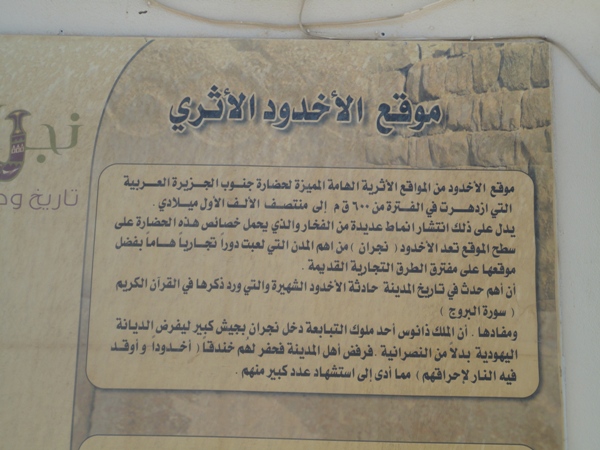 موقع الأخدود الأثري
نجر
تاريخ وح
موقع الأخدود من المواقع الأثرية الهامة المميزة لحضارة جنوب الجزيرة العربية
التي ازدهرت في الفترة من ٦٠٠ ق م إلى منتصف الألف الأول ميلادي .
يدل على ذلك انتشار انماط عديدة من الفخار والذي يحمل خصائص هذه الحضارة على
سطح الموقع تعد الأخدود ( نجران ) من اهم المدن التي لعبت دوراً تجارياً هاماً بفضل
موقعها على مفترق الطرق التجارية القديمة .
أن أهم حدث في تاريخ المدينة حادثة الأخدود الشهيرة والتي ورد ذكرها في القرآن الكريم
( سورة البروج )
ومفادها . أن الملك ذانوس أحد ملوك التبابعة دخل نجران بجيش كبير ليفرض الديانة
اليهودية بدلاً من النصرانية .فرفض أهل المدينة فحفر لهم خندقاً ( أخدوداً و أوقد
فيه النار لإحراقهم ) مما أدى إلى استشهاد عدد كبير منهم .